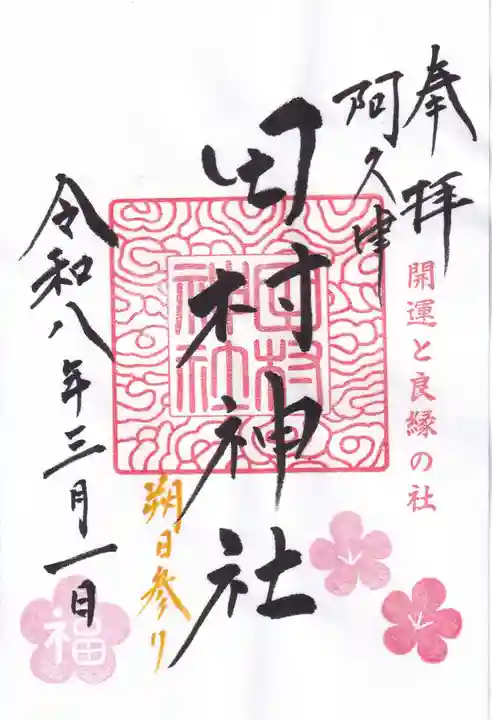 奉拝
開運と良縁の社
阿久津
田村神社
田村
神社
朔日参り
令和八年三月一日
福